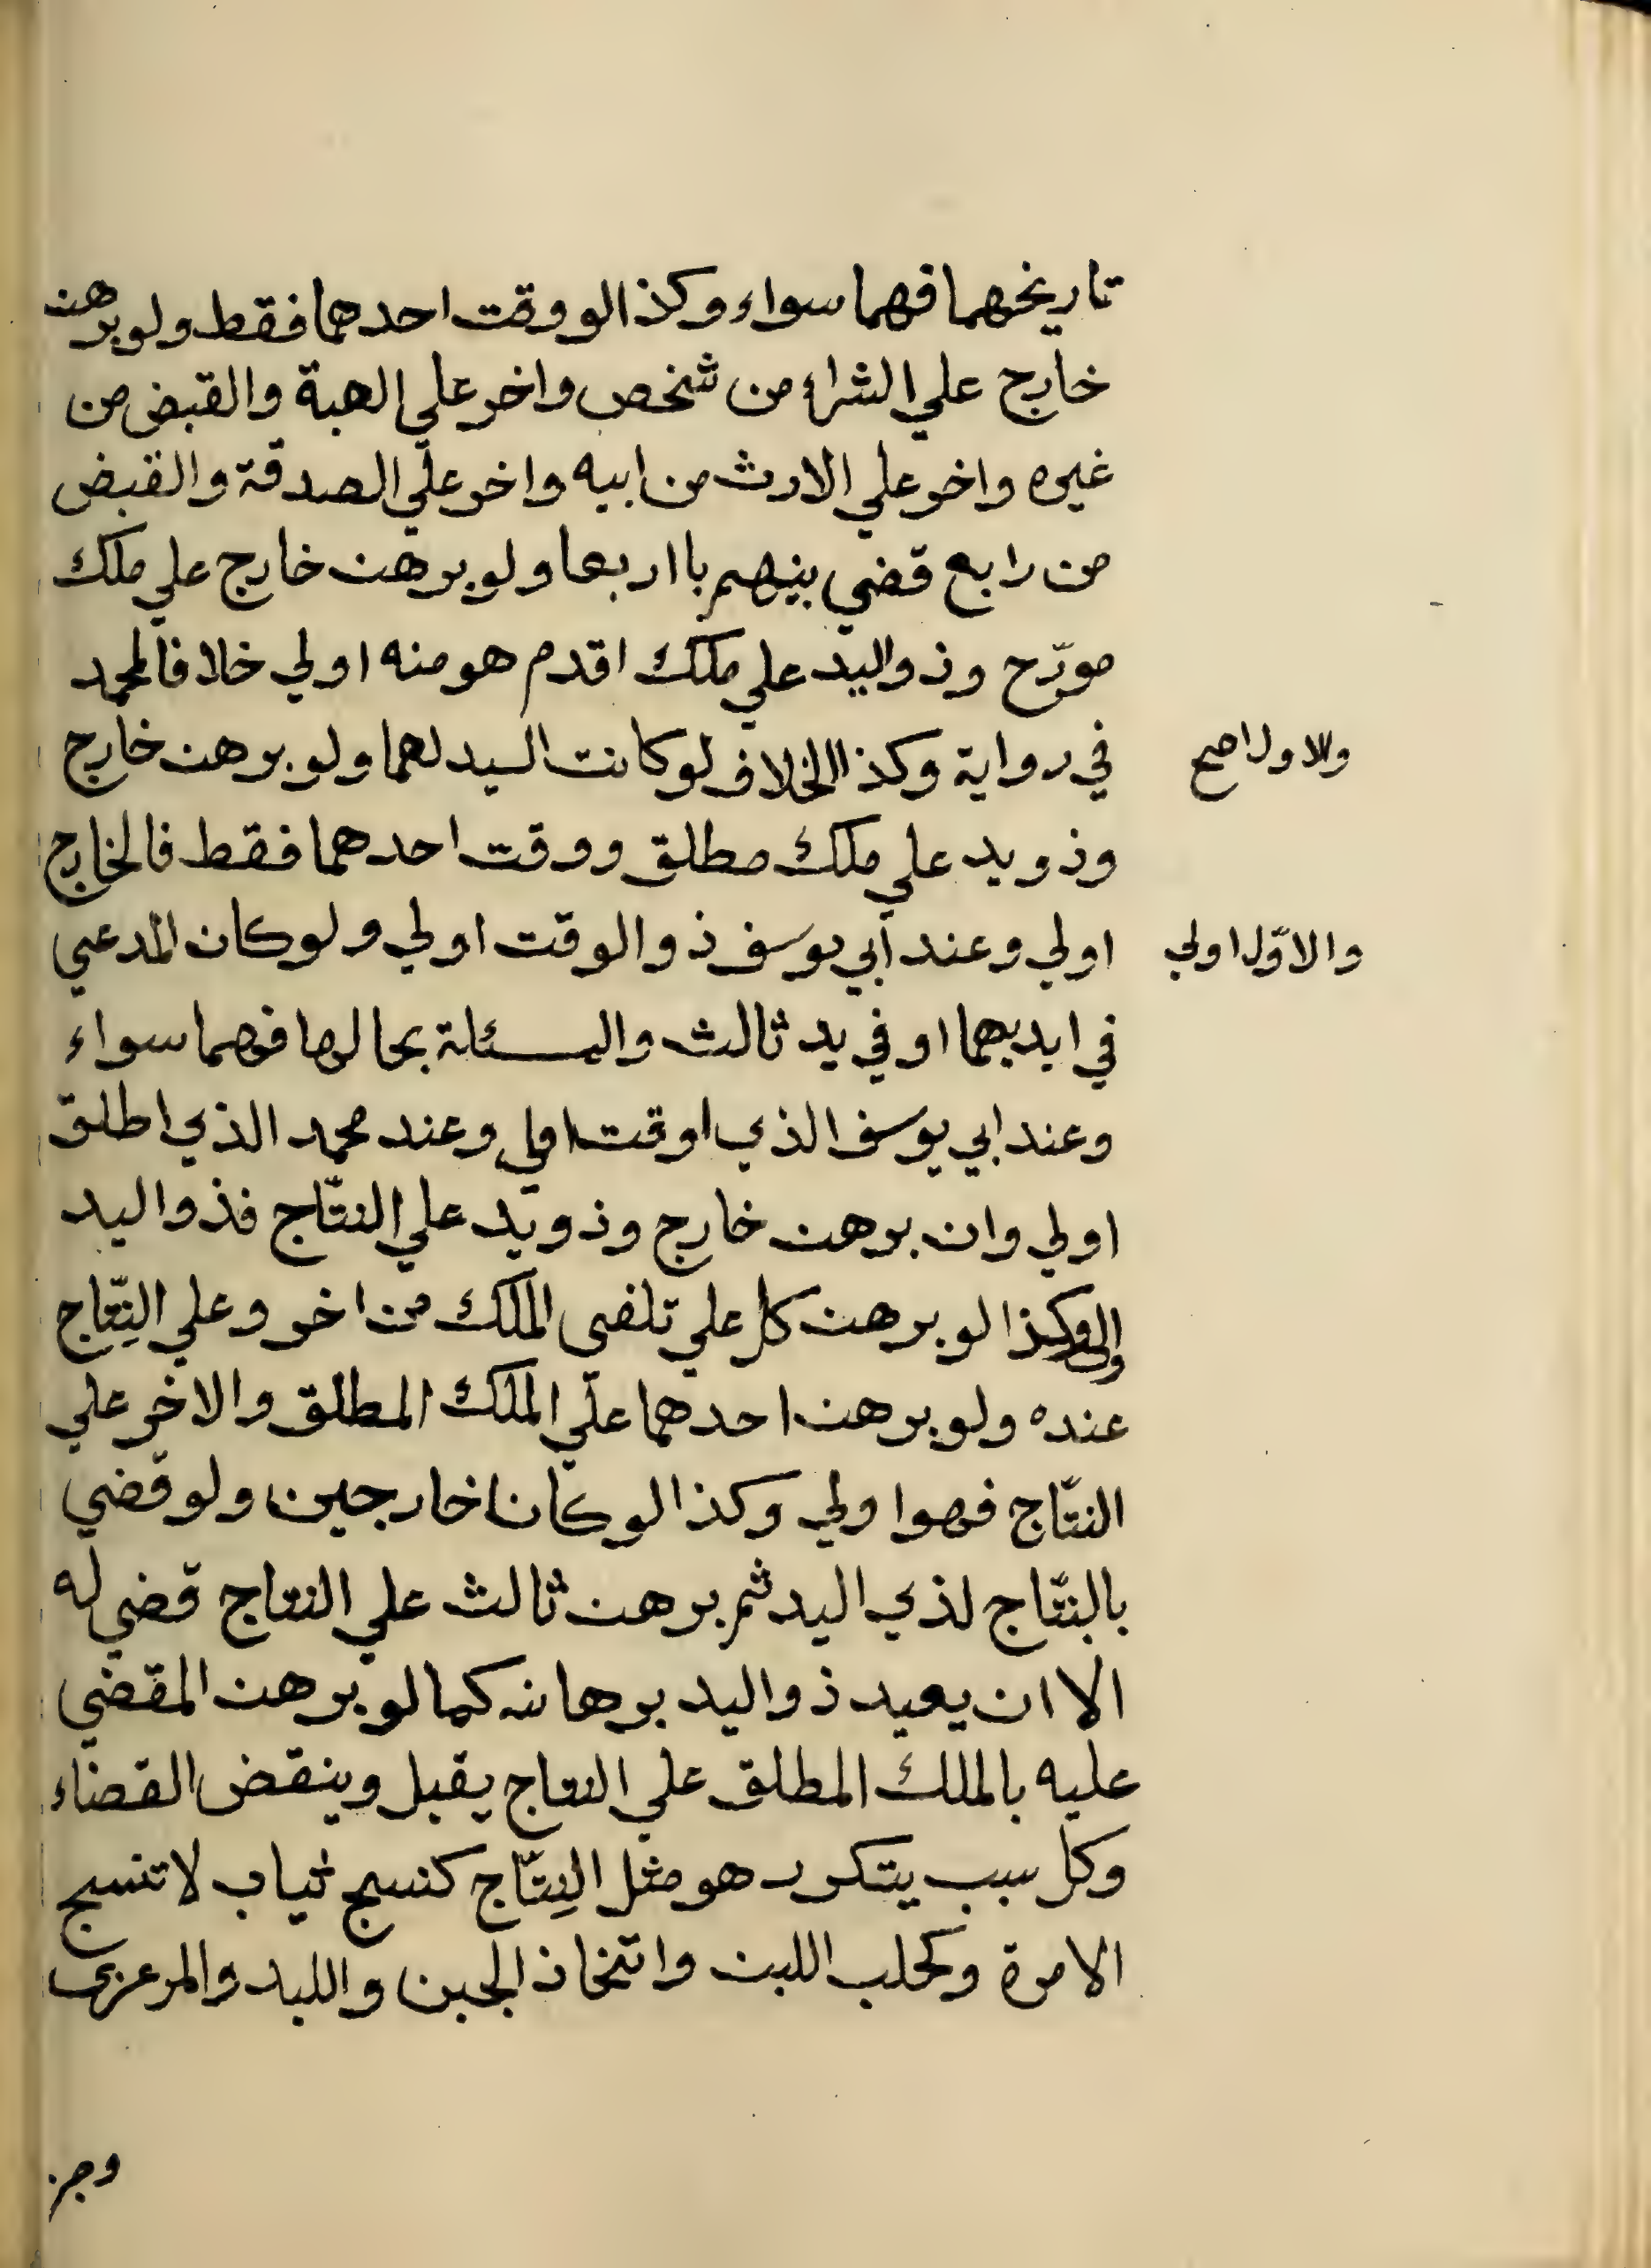 تاريخهما فهما سواء وكذا لو وقت احدهما فقط ولو برهن
خارج علي الشراء من شخص واخر علي الهبة والقبض من
غيره واخر علي الارث من ابيه واخر علي الصدقة والقبض
من رابع قضي بينهم بااربعا ولو برهن خارج علي ملك
مورّخ وذو اليد علي ملك اقدم هو منه اولي خلافا لمحمد
في رواية وكذا الخلاف لو كانت اليد لهما ولو برهن خارج
والاول اصح
وذو يد علي ملك مطلق ووقت احدهما فقط فالخارج
اولي وعند أبي يوسف ذو الوقت اولي ولو كان المدعي
والاوّل اولي
في ايديهما او في يد ثالث والمسئلة بحالها فهما سواء
وعند ابي يوسف الذي اوقت اولي وعند محمد الذي اطلق
اولي وان برهن خارج وذو يد علي النتّاج فذو اليد
اولي وكذا لو برهن كل علي تلقي الملك من اخر وعلي النِتّاج
عنده ولو برهن احدهما علي الملك المطلق والاخر علي
النتّاج فهو اولي وكذا لو كانا خارجين ولو قضي
بالنتّاج لذي اليد ثم برهن ثالث علي النتاج قضي له
الا ان يعيد ذو اليد برهانه كما لو برهن المقضي
عليه بالملك المطلق علي النتاج يقبل وينقض القضاء
وكل سبب يتكرر هو مثل النِتّاج كنسج ثياب لا تنسج
الا مرة وكحلب اللبن واتخاذ الجبن واللبد والمرعزي
وجز